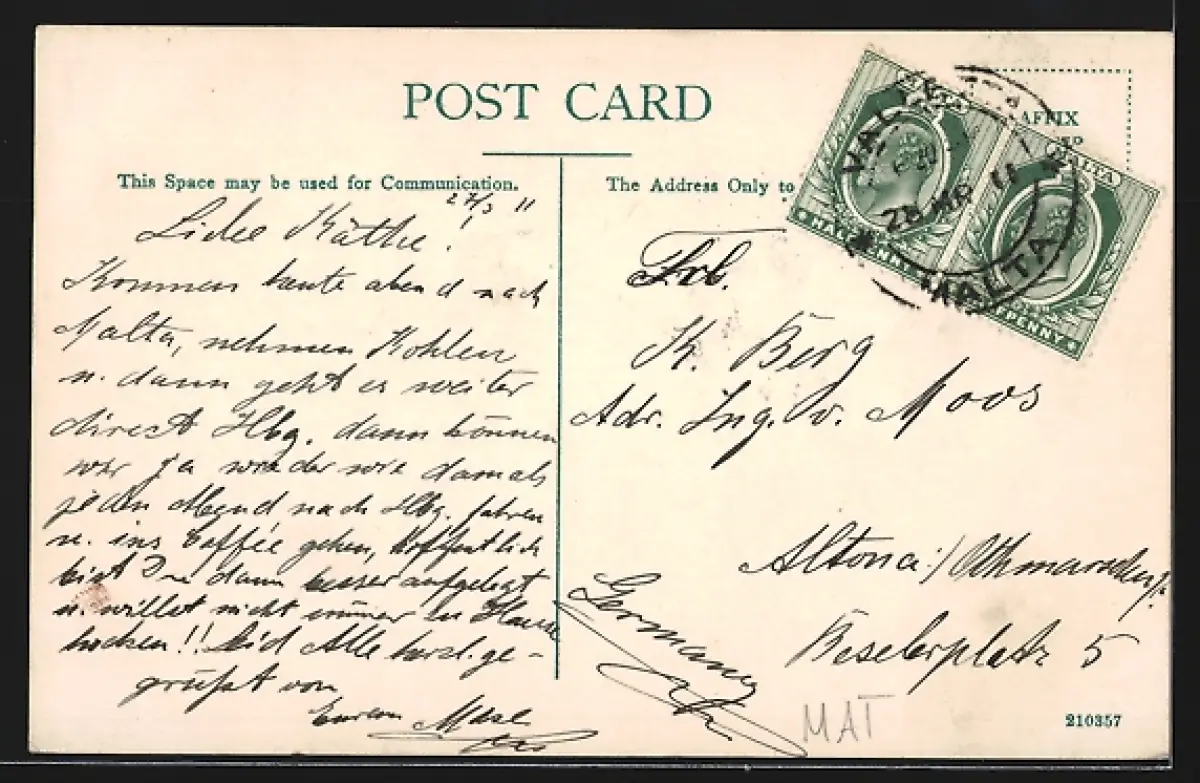 POST CARD
This Space may be used for Communication.
The Address Only to
AFFIX
VALLETTA
28 MR 11
MALTA
MALTA
HALFPENNY
MALTA
HALFPENNY
27/3 11
Liebe Käthe!
Kommen heute abend nach
Malta, nehmen Kohlen
u. dann geht es weiter
direct Hbg. dann können
wir ja wieder wie damals
jeden Abend nach Hbg. fahren
u. ins Caffée gehen, hoffentlich
bist Du dann besser aufgelegt
u. willst nicht immer zu Hause
hocken!! Seid Alle herzl. ge-
grüßt von
Eurem
Frl.
K. Berg
Adr. Ing. v. Moos
Altona/Othmarschen
Beselerplatz 5
Germany
MAT
210357